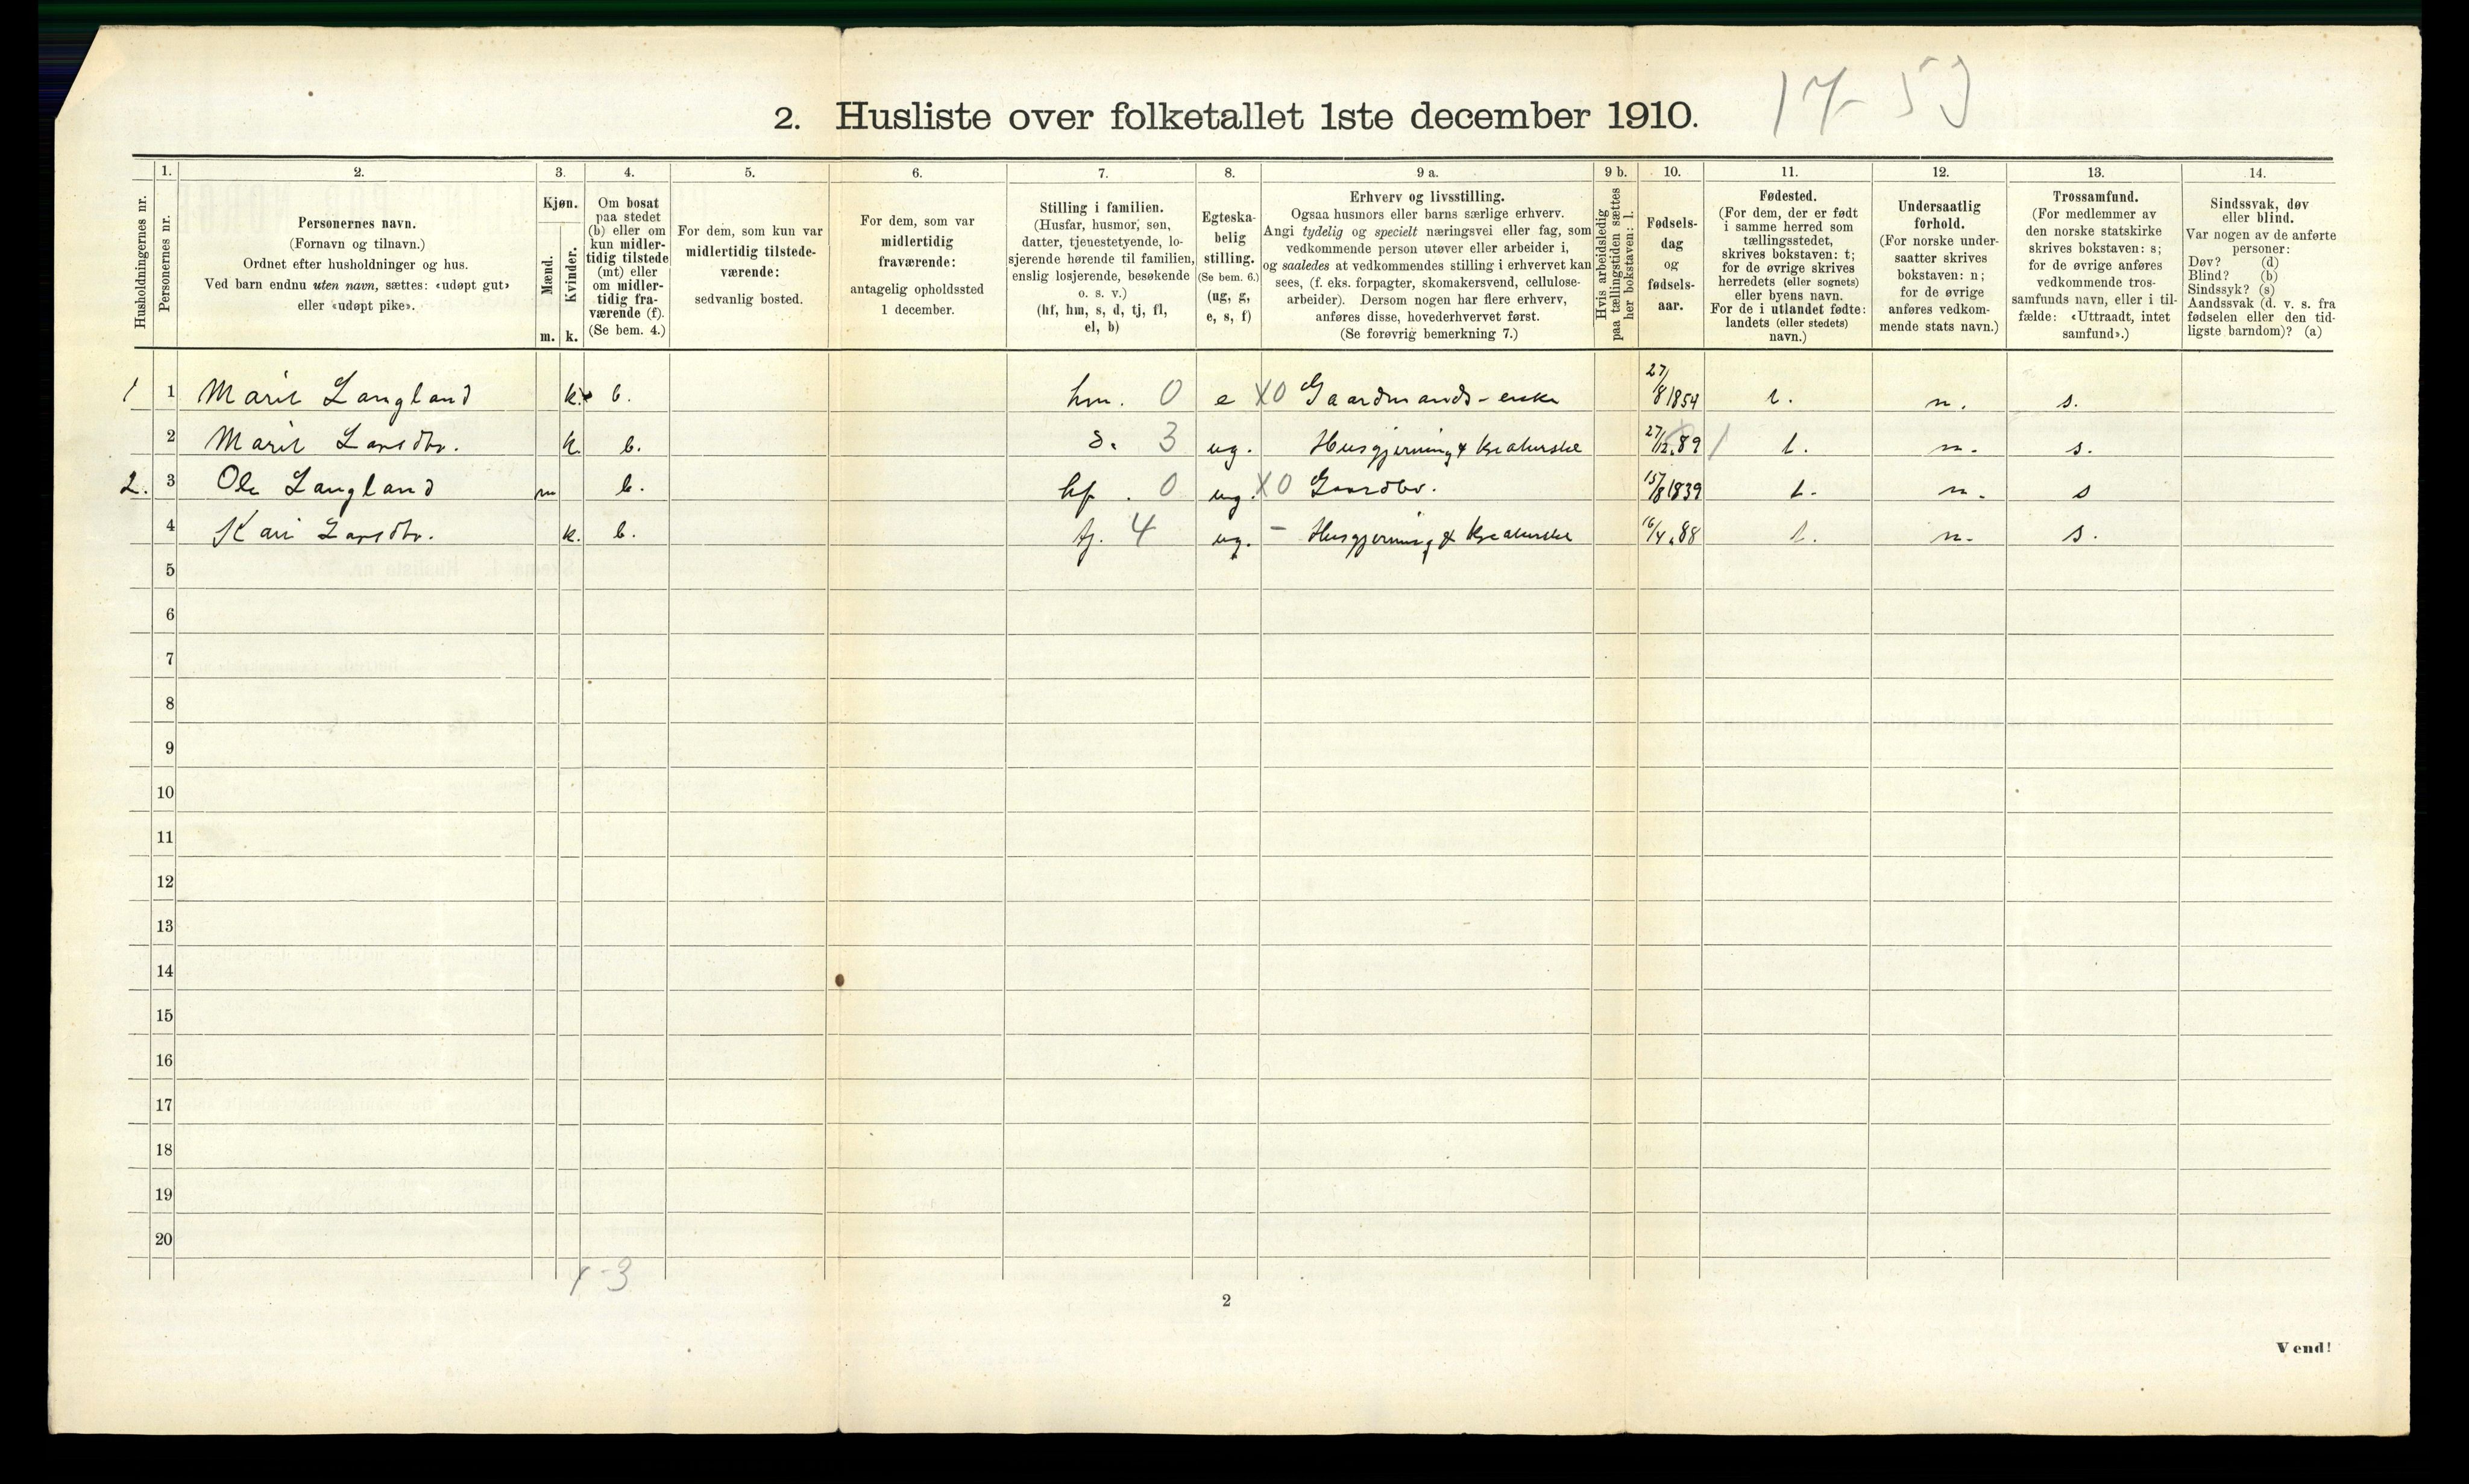 2. Husliste over folketallet 1ste december 1910.
17-53
Husholdningernes nr.
1. Personernes nr.
2. Personernes navn.
(Fornavn og tilnavn.)
Ordnet efter husholdninger og hus.
Ved barn endnu uten navn, sættes: «udøpt gut»
eller «udøpt pike».
3. Kjøn.
Mænd. m.
Kvinder. k.
4. Om bosat
paa stedet
(b) eller om
kun midler-
tidig tilstede
(mt) eller
om midler-
tidig fra-
værende (f).
(Se bem. 4.)
5. For dem, som kun var
midlertidig tilstede-
værende:
sedvanlig bosted.
6. For dem, som var
midlertidig
fraværende:
antagelig opholdssted
1 december.
7. Stilling i familien.
(Husfar, husmor, søn,
datter, tjenestetyende, lo-
sjerende hørende til familien,
enslig losjerende, besøkende
o. s. v.)
(hf, hm, s, d, tj, fl,
el, b)
8. Egteska-
belig
stilling.
(Se bem. 6.)
(ug, g,
e, s, f)
9 a. Erhverv og livsstilling.
Ogsaa husmors eller barns særlige erhverv.
Angi tydelig og specielt næringsvei eller fag, som
vedkommende person utøver eller arbeider i,
og saaledes at vedkommendes stilling i erhvervet kan
sees, (f. eks. forpagter, skomakersvend, cellulose-
arbeider). Dersom nogen har flere erhverv,
anføres disse, hovederhvervet først.
(Se forøvrig bemerkning 7.)
9 b. Hvis arbeidsledig
paa tællingstiden sættes
her bokstaven: l.
10. Fødsels-
dag
og
fødsels-
aar.
11. Fødested.
(For dem, der er født
i samme herred som
tællingsstedet,
skrives bokstaven: t;
for de øvrige skrives
herredets (eller sognets)
eller byens navn.
For de i utlandet fødte:
landets (eller stedets)
navn.)
12. Undersaatlig
forhold.
(For norske under-
saatter skrives
bokstaven: n;
for de øvrige
anføres vedkom-
mende stats navn.)
13. Trossamfund.
(For medlemmer av
den norske statskirke
skrives bokstaven: s;
for de øvrige anføres
vedkommende tros-
samfunds navn, eller i til-
fælde: «Uttraadt, intet
samfund».)
14. Sindssvak, døv
eller blind.
Var nogen av de anførte
personer:
Døv? (d)
Blind? (b)
Sindssyk? (s)
Aandssvak (d. v. s. fra
fødselen eller den tid-
ligste barndom)? (a)
1 1 Marit Langland k. b. hm. 0 e X0 Gaardmands-enke 27/8 1854 t. n. s.
2 Marit Larsdtr. k. b. d. 3 ug. Husgjerning & kreaturstel 27/12.89 t. n. s.
2. 3 Ole Langland m b. hf. 0 ug. X0 Gaardbr. 15/8 1839 t. n. s
4 Kari Larsdtr. k. b. tj. 4 ug. - Husgjerning & kreaturstel 16/4.88 t. n. s.
5
6
7
8
9
10
11
12
13
14
15
16
17
18
19
20
1-3
2
Vend!